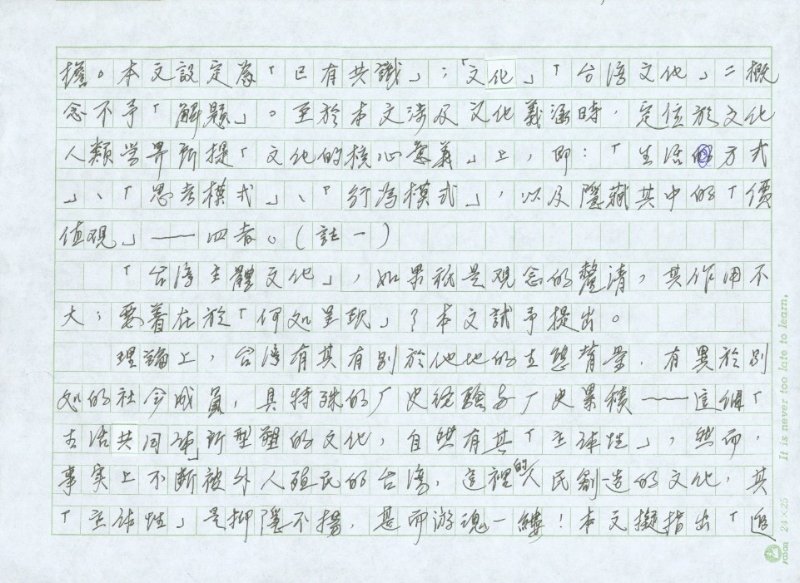 擔。本文設定為「已有共識」；「文化」「台湾文化」二概
念不予「解題」。至於本文涉及文化義涵時，定位於文化
人類学界所提「文化的核心意義」上，即：「生活的方式
」、「思考模式」、「行為模式」，以及隱藏其中的「價
值观」——四者。（註一）
「台湾主體文化」，如果祇是观念的釐清，其作用不
大；要著在於「何如呈现」？本文試予提出。
理論上，台湾有其有別於他地的生態背景，有異於別
処的社会成員，具特殊的厂史経驗与厂史累積——這個「
生活共同体」所型塑的文化，自然有其「主体性」，然而，
事实上不断被外人殖民的台湾，這裡的人民創造的文化，其
「主体性」是抑隱不揚，甚而游魂一縷！本文擬指出「追
It is never too late to learn.
24×25